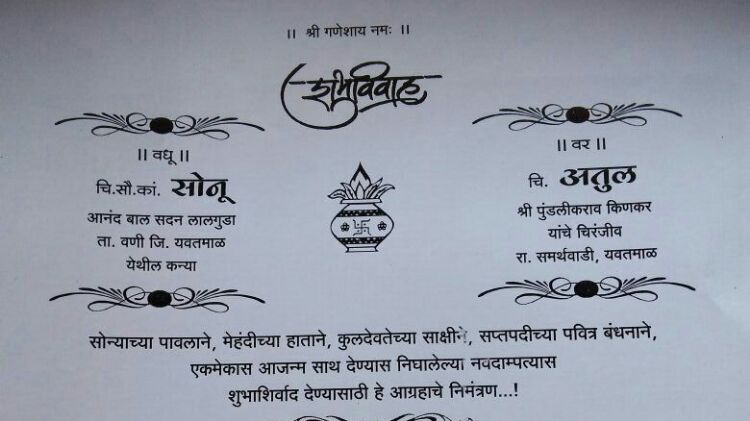 ॥ श्री गणेशाय नमः ॥
शुभविवाह
॥ वधू ॥
चि.सौ.कां. सोनू
आनंद बाल सदन लालगुडा
ता. वणी जि. यवतमाळ
येथील कन्या
॥ वर ॥
चि. अतुल
श्री पुंडलीकराव किणकर
यांचे चिरंजीव
रा. समर्थवाडी, यवतमाळ
सोन्याच्या पावलाने, मेहंदीच्या हाताने, कुलदेवतेच्या साक्षीने, सप्तपदीच्या पवित्र बंधनाने,
एकमेकास आजन्म साथ देण्यास निघालेल्या नवदाम्पत्यास
शुभाशिर्वाद देण्यासाठी हे आग्रहाचे निमंत्रण...!